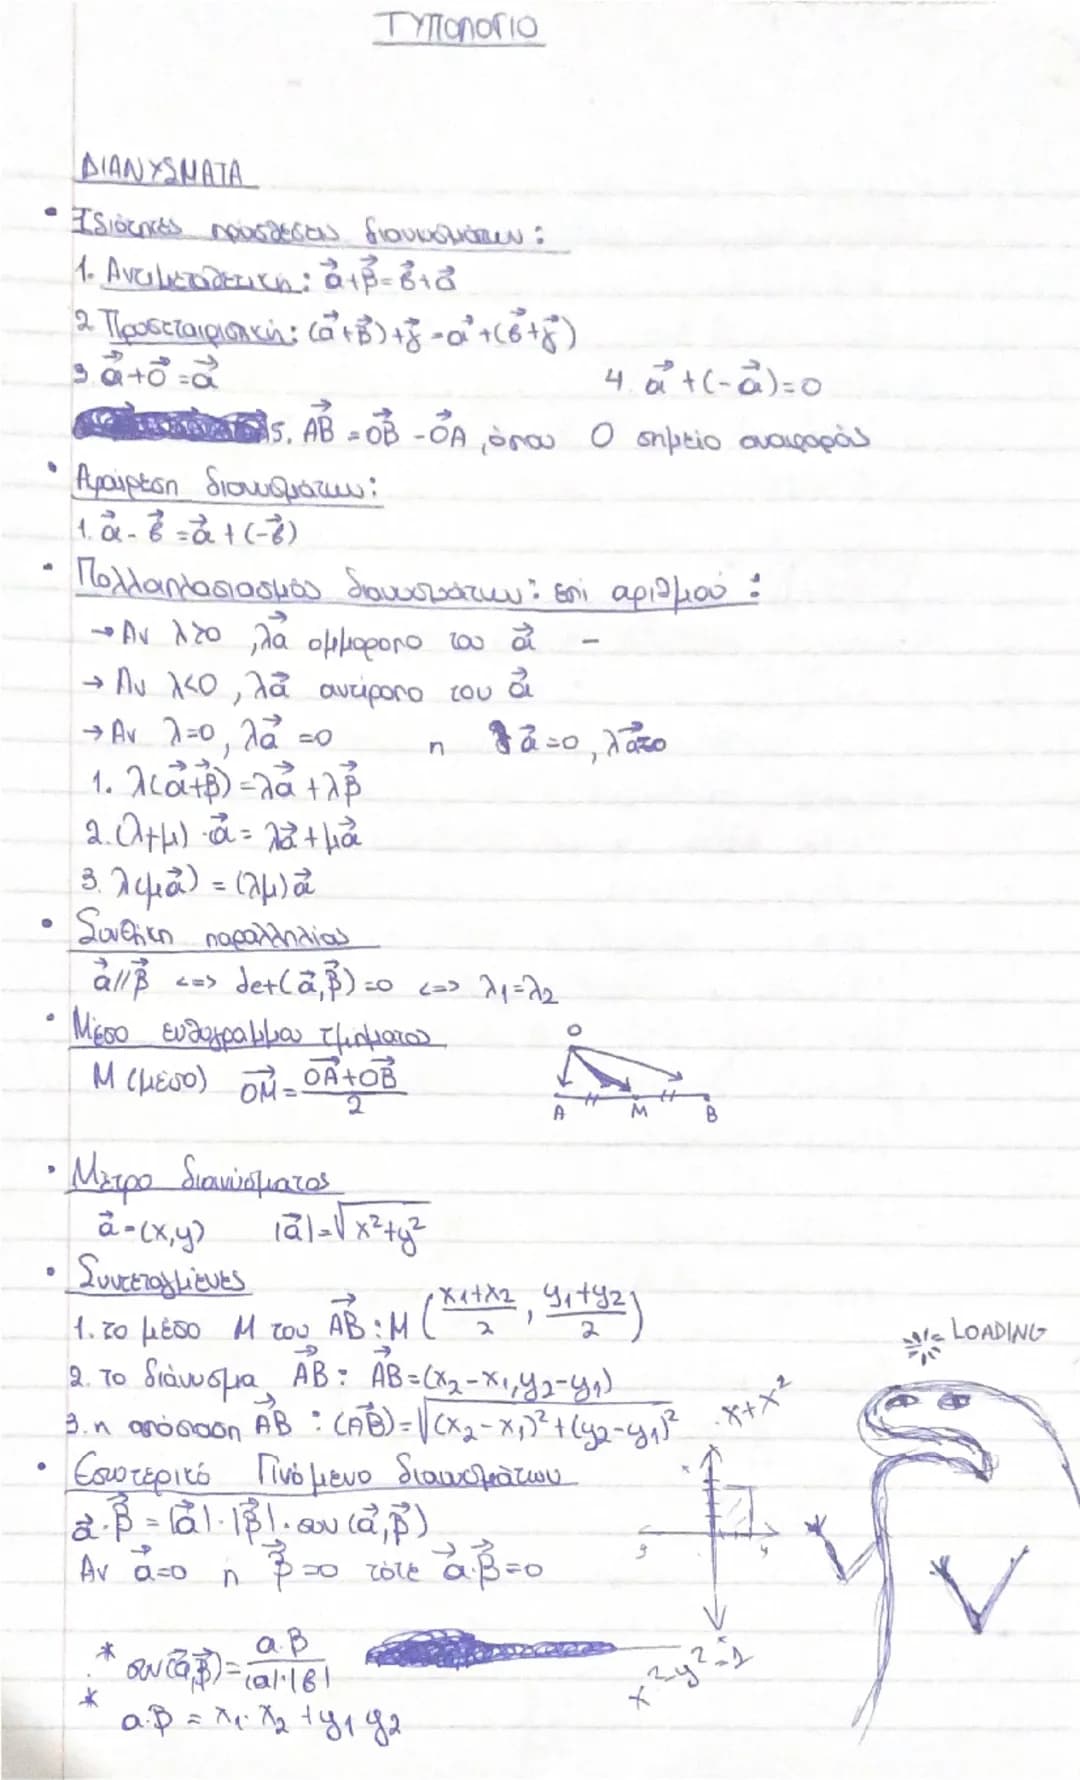 ΤΥΠΟΛΟΓΙΟ
ΔΙΑΝΥΣΜΑΤΑ
• Ιδιότητες πρόσθεσης διανυσμάτων:
1. Αντιμεταθετική: α⃗+β⃗=β⃗+α⃗
2 Προσεταιριστική: (α⃗+β⃗)+γ⃗=α⃗+(β⃗+γ⃗)
3. α⃗+0⃗=α⃗ 4. α⃗+(-α⃗)=0
5. ΑΒ⃗=ΟΒ⃗-ΟΑ⃗, όπου Ο σημείο αναφοράς
• Αφαίρεση διανυσμάτων:
1. α⃗-β⃗=α⃗+(-β⃗)
• Πολλαπλασιασμός διανυσμάτων: επί αριθμού:
→ Αν λ>0, λα⃗ ομμοροπο του α⃗ -
→ Αν λ<0, λα⃗ αντίροπο του α⃗
→ Αν λ=0, λα⃗=0 η α⃗=0, λα⃗=0
1. λ(α⃗+β⃗)=λα⃗+λβ⃗
2. (λ+μ)·α⃗=λα⃗+μα⃗
3. λ(μα⃗)=(λμ)α⃗
• Συνθήκη παραλληλίας
α⃗//β⃗ <=> det(α⃗,β⃗)=0 <=> λ1=λ2
• Μέσο ευθυγραμμου τμήματος
Μ (μέσο) ΟΜ⃗=(ΟΑ⃗+ΟΒ⃗)/2
O
A M B
• Μέτρο διανύσματος
α⃗=(x,y) |α⃗|=√(x²+y²)
• Συντεταγμένες
1. το μέσο Μ του ΑΒ⃗: Μ((x1+x2)/2, (y1+y2)/2)
2. το διάνυσμα ΑΒ⃗: ΑΒ⃗=(x2-x1,y2-y1)
3. η απόσταση ΑΒ⃗: (ΑΒ⃗)=√((x2-x1)²+(y2-y1)²)
LOADING
x+x²
• Εσωτερικό Γινόμενο διανυσμάτων
α⃗·β⃗=|α⃗|·|β⃗|·συν(α⃗,β⃗)
Αν α⃗=0 η β⃗=0 τότε α⃗·β⃗=0
* συν(α⃗,β⃗)=(α·β)/(|α|·|β|)
x²-y²=1
* α·β=x1·x2+y1y2